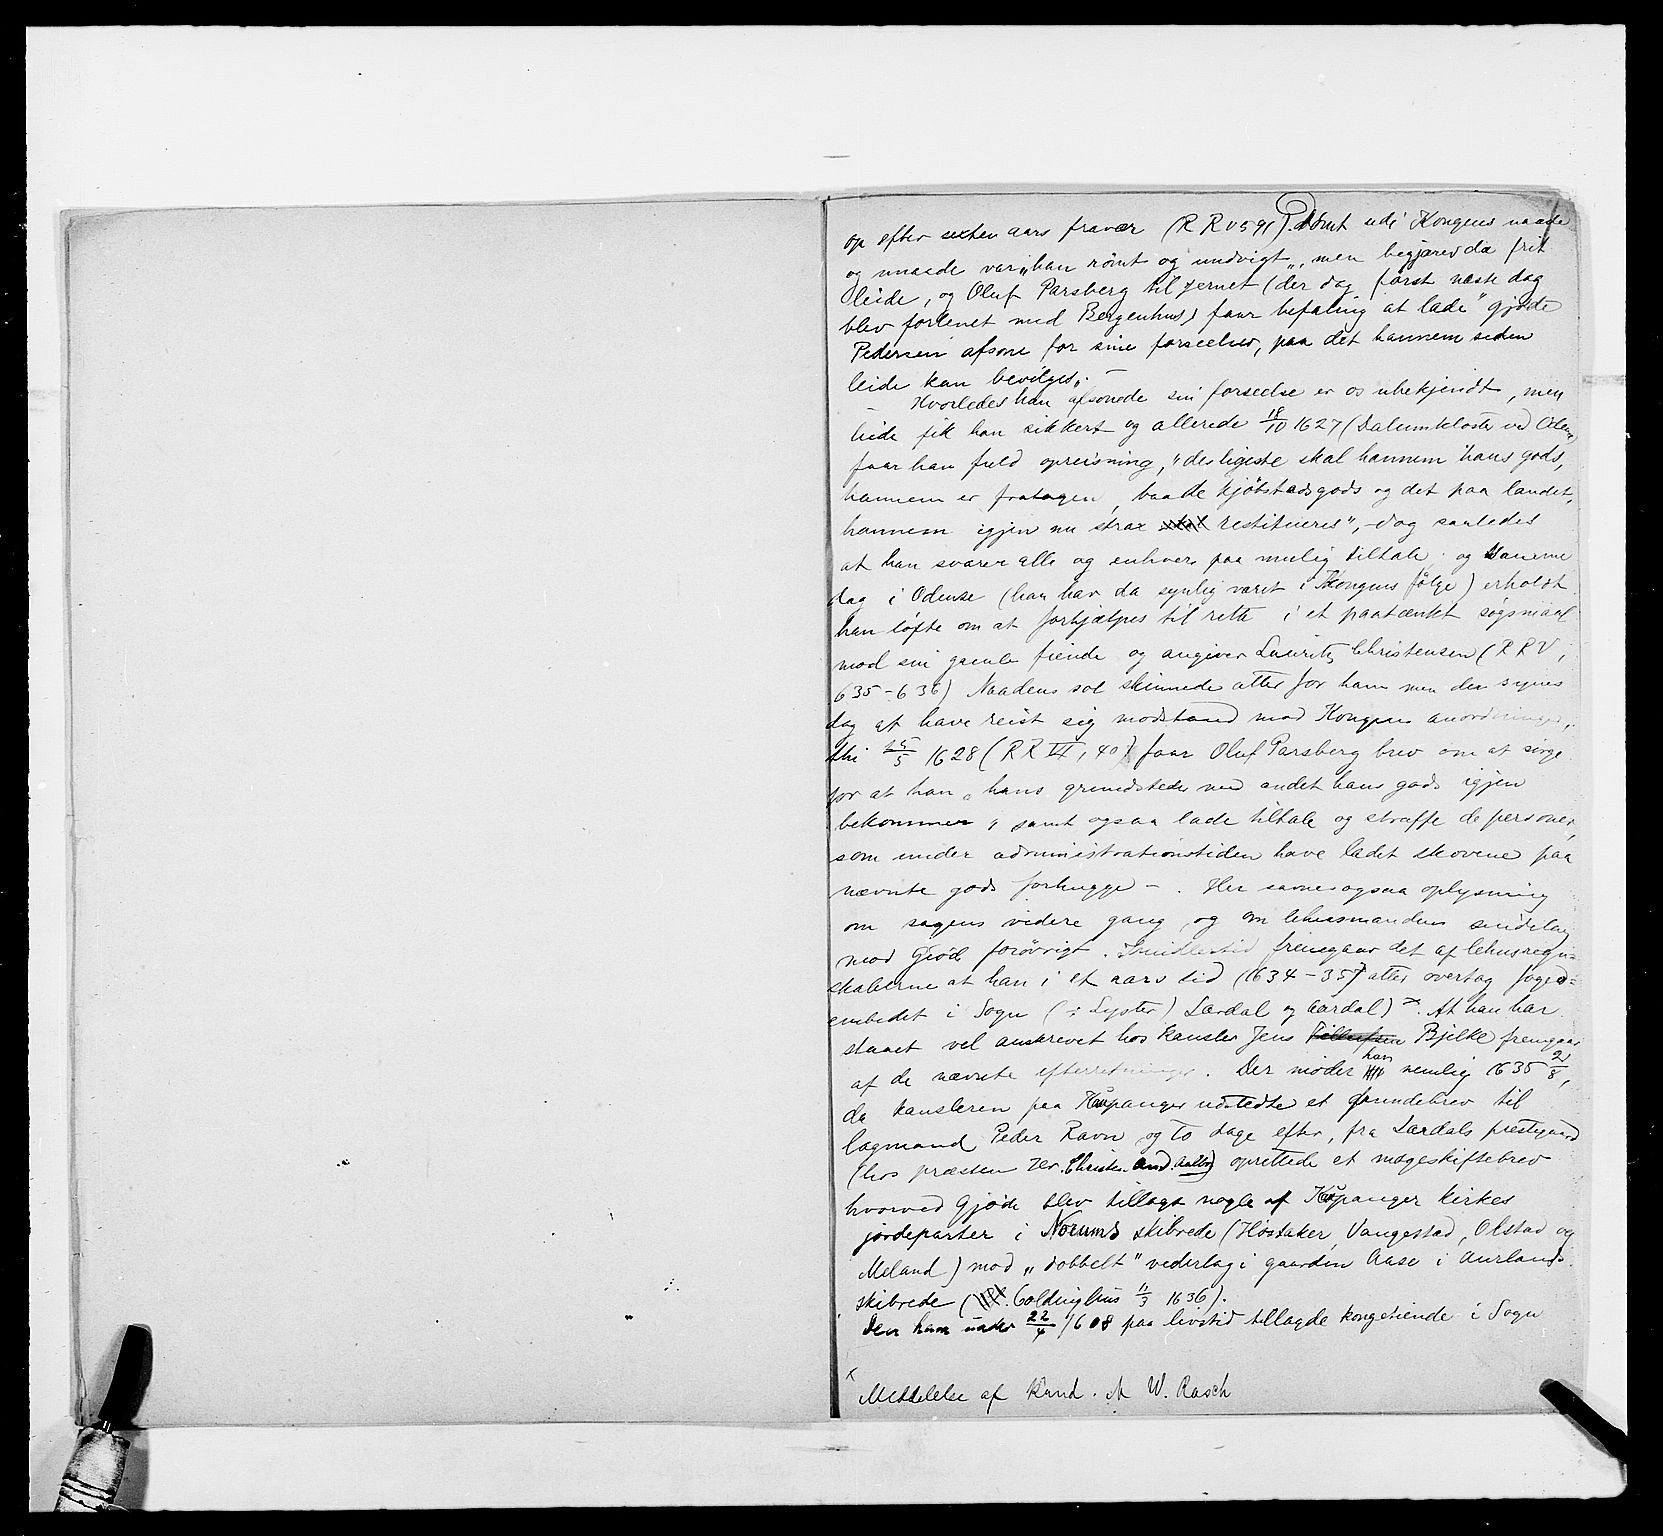 op efter sexten aars fravær (R R V 591). Dømt udi Kongens naade
og unaade var „han rømt og undvigt„, men begjærer da frit
leide, og Oluf Parsberg til Jernet (der dog først næste dag
blev forlenet med Bergenhus) faar befaling at lade "gjøde
Pedersen afsone for sine forseelser, paa det hannem siden
leide kan bevilges„. —
Hvorledes han afsonede sin forseelse er os ubekjendt, men
leide fik han sikkert og allerede 18/10 1627 (Dalumkloster ved Odense
faar han fuld opreisning, "desligeste skal hannem hans gods,
hannem er fratagen, baade kjøbstadsgods og det paa landet,
hannem igjen nu strax restitueres", – dog saaledes
at han svarer alle og enhver paa mulig tiltale. og samme
dag i Odense (han har da synlig været i Kongens følge) erholdt
han løfte om at forhjælpes til rette i et paatænkt søgsmaal
mod sin gamle fiende og angiver Lauritz Christensen (R R V,
635-636) Naadens sol skinnede atter for ham men der synes
dog at have reist sig modstand mod Kongens anordninger,
thi 25/5 1628 (RR VI, 40) faar Oluf Parsberg brev om at sørge
for at han „hans grundsteder med andet hans gods igjen
bekommer„ samt ogsaa lade tiltale og straffe de personer,
som under administrationstiden have ladet skovene paa
nævnte gods forhugge –. Her savnes ogsaa oplysning
om sagens videre gang og om lehnsmandens sindelag
mod Giöd forøvrigt. Imidlertid fremgaar det af lehnsregn=
skaberne at han i et aars tid (1634-35) atter overtog foged=
embedet i Sogn (: Lyster) Lærdal og Aardal) x. At han har
staaet vel anskrevet hos kansler Jens Bjelke fremgaar
af de nævnte efterretninger. Der møder han nemlig 1635 2/8,
da kansleren paa Kaupanger udstedte et fundebrev til
lagmand Peder Ravn og to dage efter, fra Lærdals prestegaard
(hos præsten Hr. Christen And. Aalb.) oprettede et mageskiftebrev
hvorved Gjøde blev tillagt nogle af Kaupanger kirkes
jordeparter i Norums skibrede (Høstaker, Vangestad, Olstad og
Meland) mod „dobbelt" vederlag i gaarden Aase i Aurlands
skibrede ( Coldinghus 11/3 1636).
Den ham under 22/4 1608 paa livstid tillagde kongetiende i Sogn
x
Meddelelse af Kand. A W. Rasch